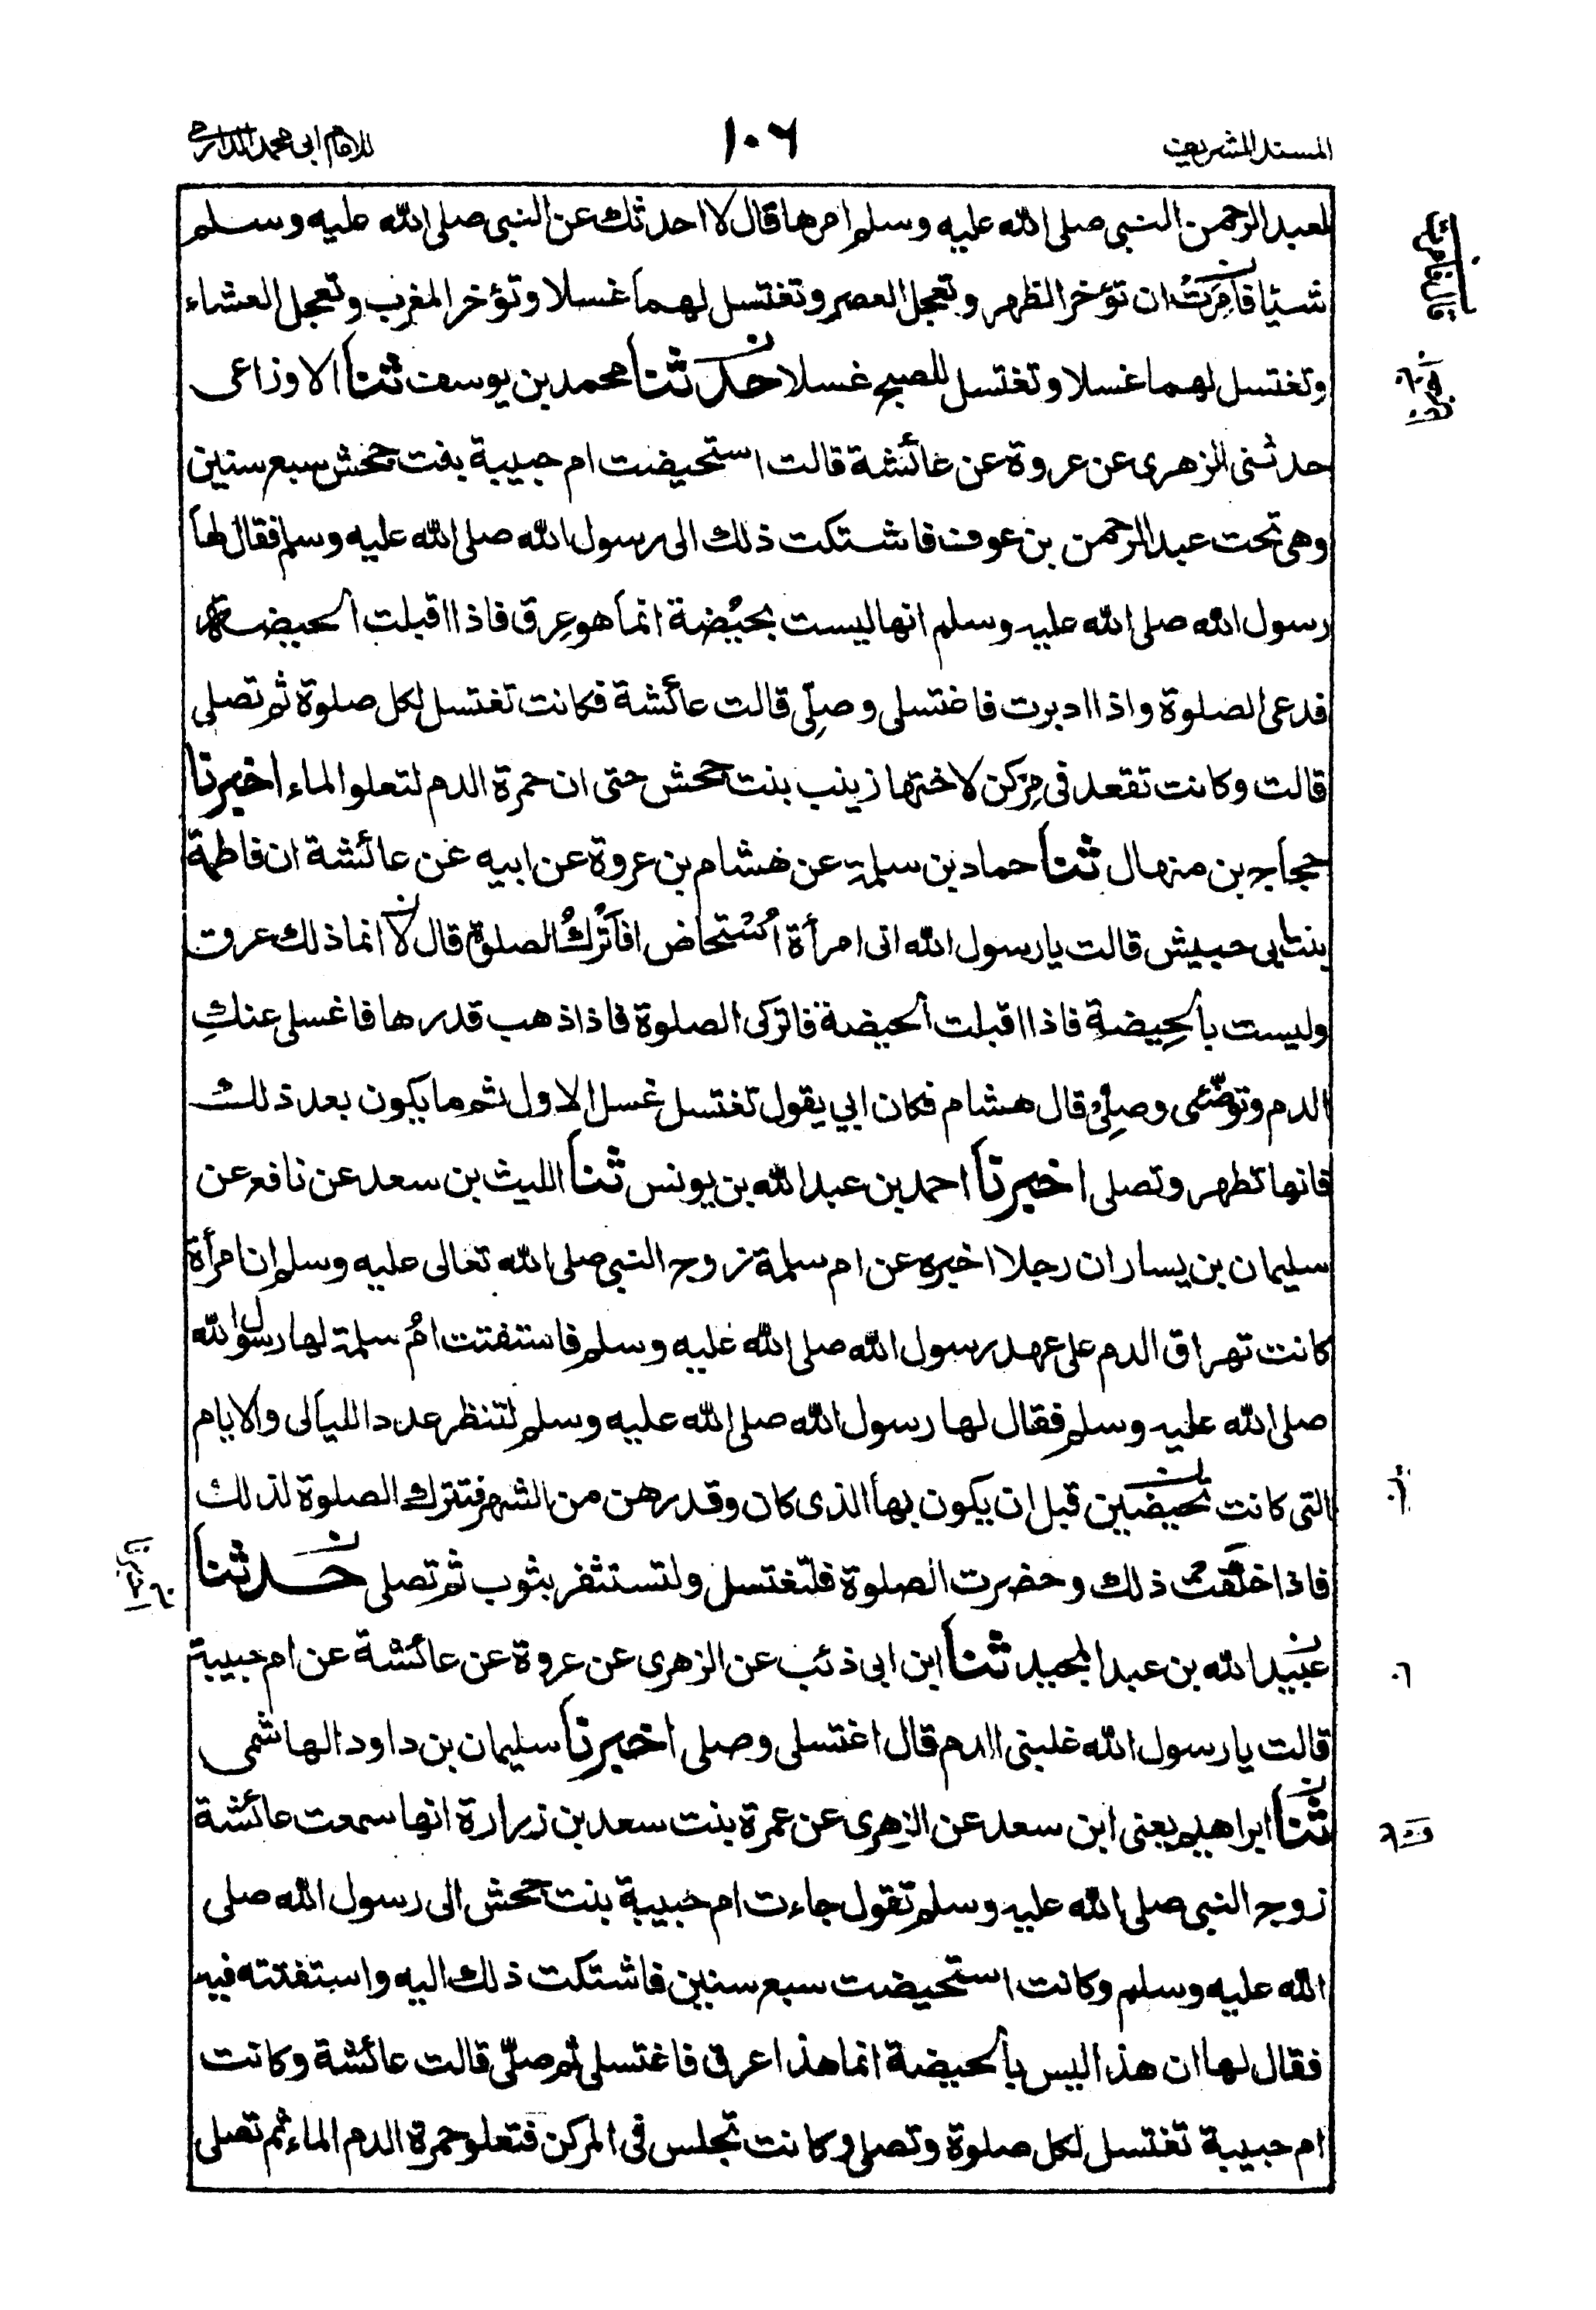 المسند الشريف
١٠٦
للامام ابى محمد الدارمى
لعبد الرحمن النبى صلى الله عليه وسلم امرها قال لا احدثك عن النبى صلى الله عليه وسلم
شيئا فاُمِرَتْ ان تؤخر الظهر وتعجل العصر وتغتسل لهما غسلا وتؤخر المغرب وتعجل العشاء
وتغتسل لهما غسلا وتغتسل للصبح غسلا حدثنا محمد بن يوسف ثنا الاوزاعى
حدثنى الزهرى عن عروة عن عائشة قالت استحيضت ام حبيبة بنت جحش سبع سنين
وهى تحت عبد الرحمن بن عوف فاشتكت ذلك الى رسول الله صلى الله عليه وسلم فقال لها
رسول الله صلى الله عليه وسلم انها ليست بحَيْضة انما هو عِرق فاذا اقبلت الحيضة
فدعى الصلوة واذا ادبرت فاغتسلى وصلِّى قالت عائشة فكانت تغتسل لكل صلوة ثم تصلى
قالت وكانت تقعد فى مِركن لاختها زينب بنت جحش حتى ان حمرة الدم لتعلو الماء اخبرنا
حجاج بن منهال ثنا حماد بن سلمة عن هشام بن عروة عن ابيه عن عائشة ان فاطمة
بنت ابى حبيش قالت يا رسول الله انى امرأة اُسْتحاض افأتْرُكُ الصلوة قال لا انما ذلك عرق
وليست بالحِيضةِ فاذا اقبلت الحيضة فاتركى الصلوة فاذا ذهب قدرها فاغسلى عنكِ
الدم وتوضّئى وصلِّى قال هشام فكان ابي يقول تغتسل غسل الاول ثم ما يكون بعد ذلك
فانها تطهر وتصلى اخبرنا احمد بن عبد الله بن يونس ثنا الليث بن سعد عن نافع عن
سليمان بن يسار ان رجلا اخبره عن ام سلمة زوج النبى صلى الله تعالى عليه وسلم ان امرأة
كانت تهراق الدم على عهد رسول الله صلى الله عليه وسلم فاستفتت امُ سلمة لها رسول الله
صلى الله عليه وسلم فقال لها رسول الله صلى الله عليه وسلم لتنظر عدد الليالى والايام
التى كانت تحيضهن قبل ان يكون بها الذى كان وقدرهن من الشهر فتترك الصلوة لذلك
فاذا خلّفت ذلك وحضرت الصلوة فلتغتسل ولتستثفر بثوب ثم تصلى حدثنا
عبيد الله بن عبد المجيد ثنا ابن ابى ذئب عن الزهرى عن عروة عن عائشة عن ام حبيبة
قالت يا رسول الله غلبنى الدم قال اغتسلى وصلى اخبرنا سليمان بن داود الهاشمى
ثنا ابراهيم يعنى ابن سعد عن الزهرى عن عمرة بنت سعد بن زرارة انها سمعت عائشة
زوج النبى صلى الله عليه وسلم تقول جاءت ام حبيبة بنت جحش الى رسول الله صلى
الله عليه وسلم وكانت استحيضت سبع سنين فاشتكت ذلك اليه واستفتته فيه
فقال لها ان هذا ليس بالحيضة انما هذا عرق فاغتسلى ثم صلّى قالت عائشة وكانت
ام حبيبة تغتسل لكل صلوة وتصلى وكانت تجلس فى المركن فتعلو حمرة الدم الماء ثم تصلى